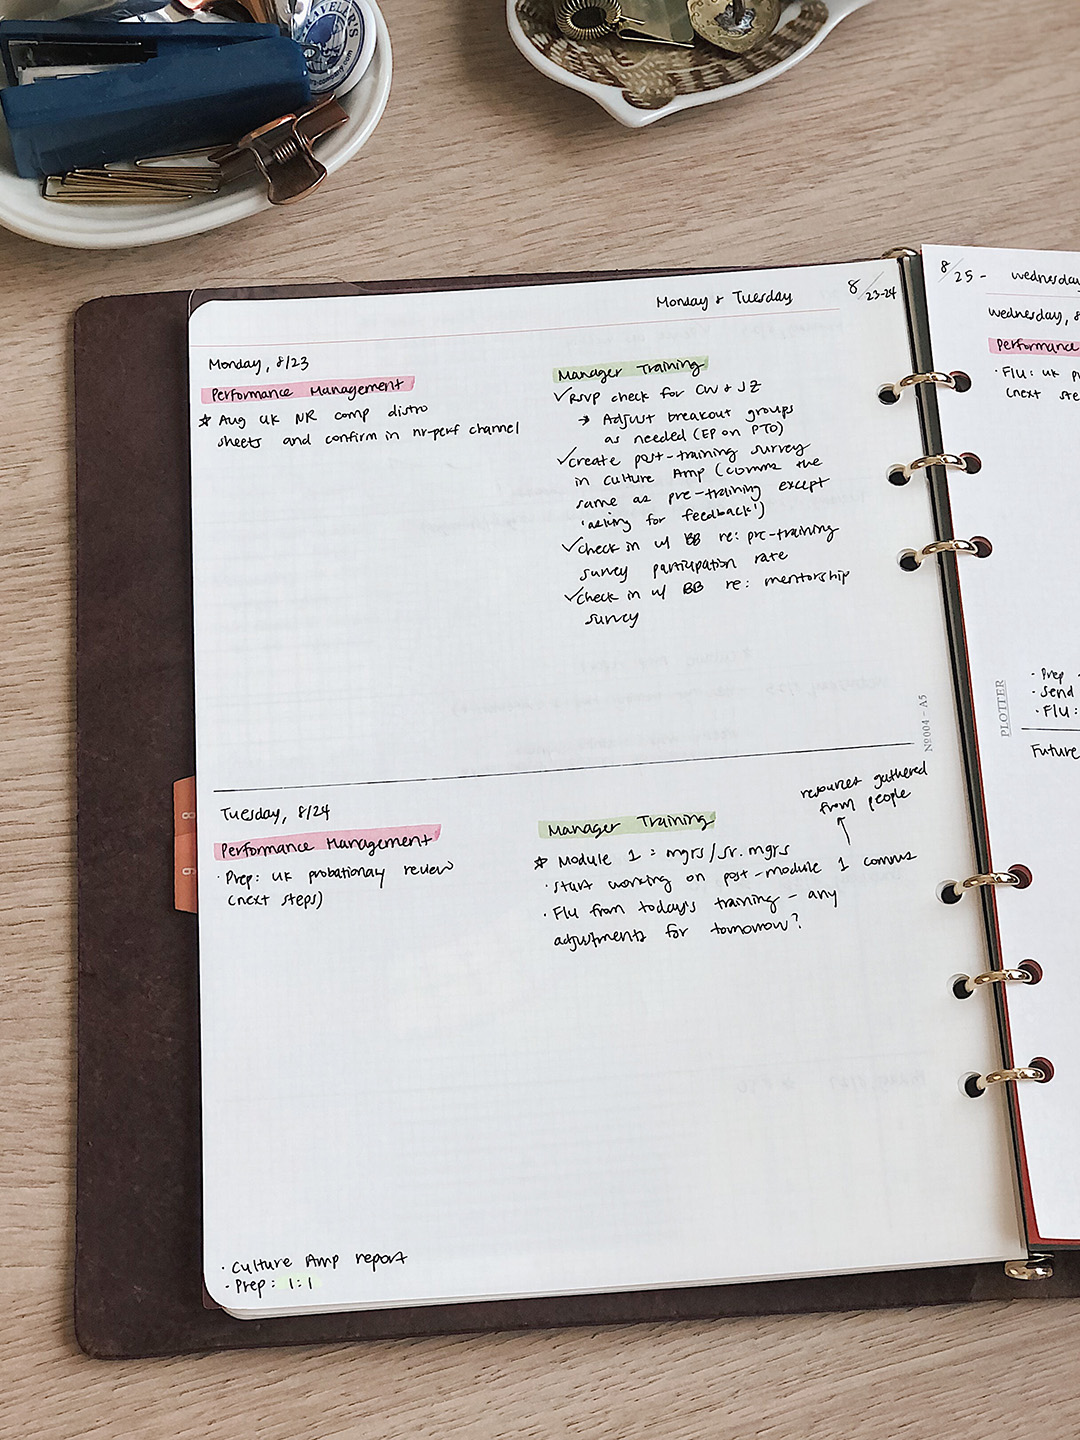 TRAVELER'S
Monday & Tuesday
8/23-24
Monday, 8/23
Performance Management
☆ Aug UK NR comp distro
sheets and confirm in nr-perf channel
Manager Training
✓ RSVP check for CW & JZ
→ Adjust breakout groups
as needed (EP on PTO)
✓ create post-training survey
in Culture Amp (comms the
same as pre-training except
'asking for feedback')
✓ check in w/ BB re: pre-training
survey participation rate
✓ check in w/ BB re: mentorship
survey
Nº004 - A5
Tuesday, 8/24
Performance Management
· Prep: UK probationary review
(next steps)
resources gathered
from people
Manager Training
☆ Module 1: mgrs/sr. mgrs
· Start working on post-module 1 comms
· F/U from today's training - any
adjustments for tomorrow?
· Culture Amp report
· Prep: 1:1
8
9
8/25 - Wednesday
Wednesday, 8
Performance
· F/U: UK pr
(next ste
· Prep
· Send
· F/U:
PLOTTER
Future